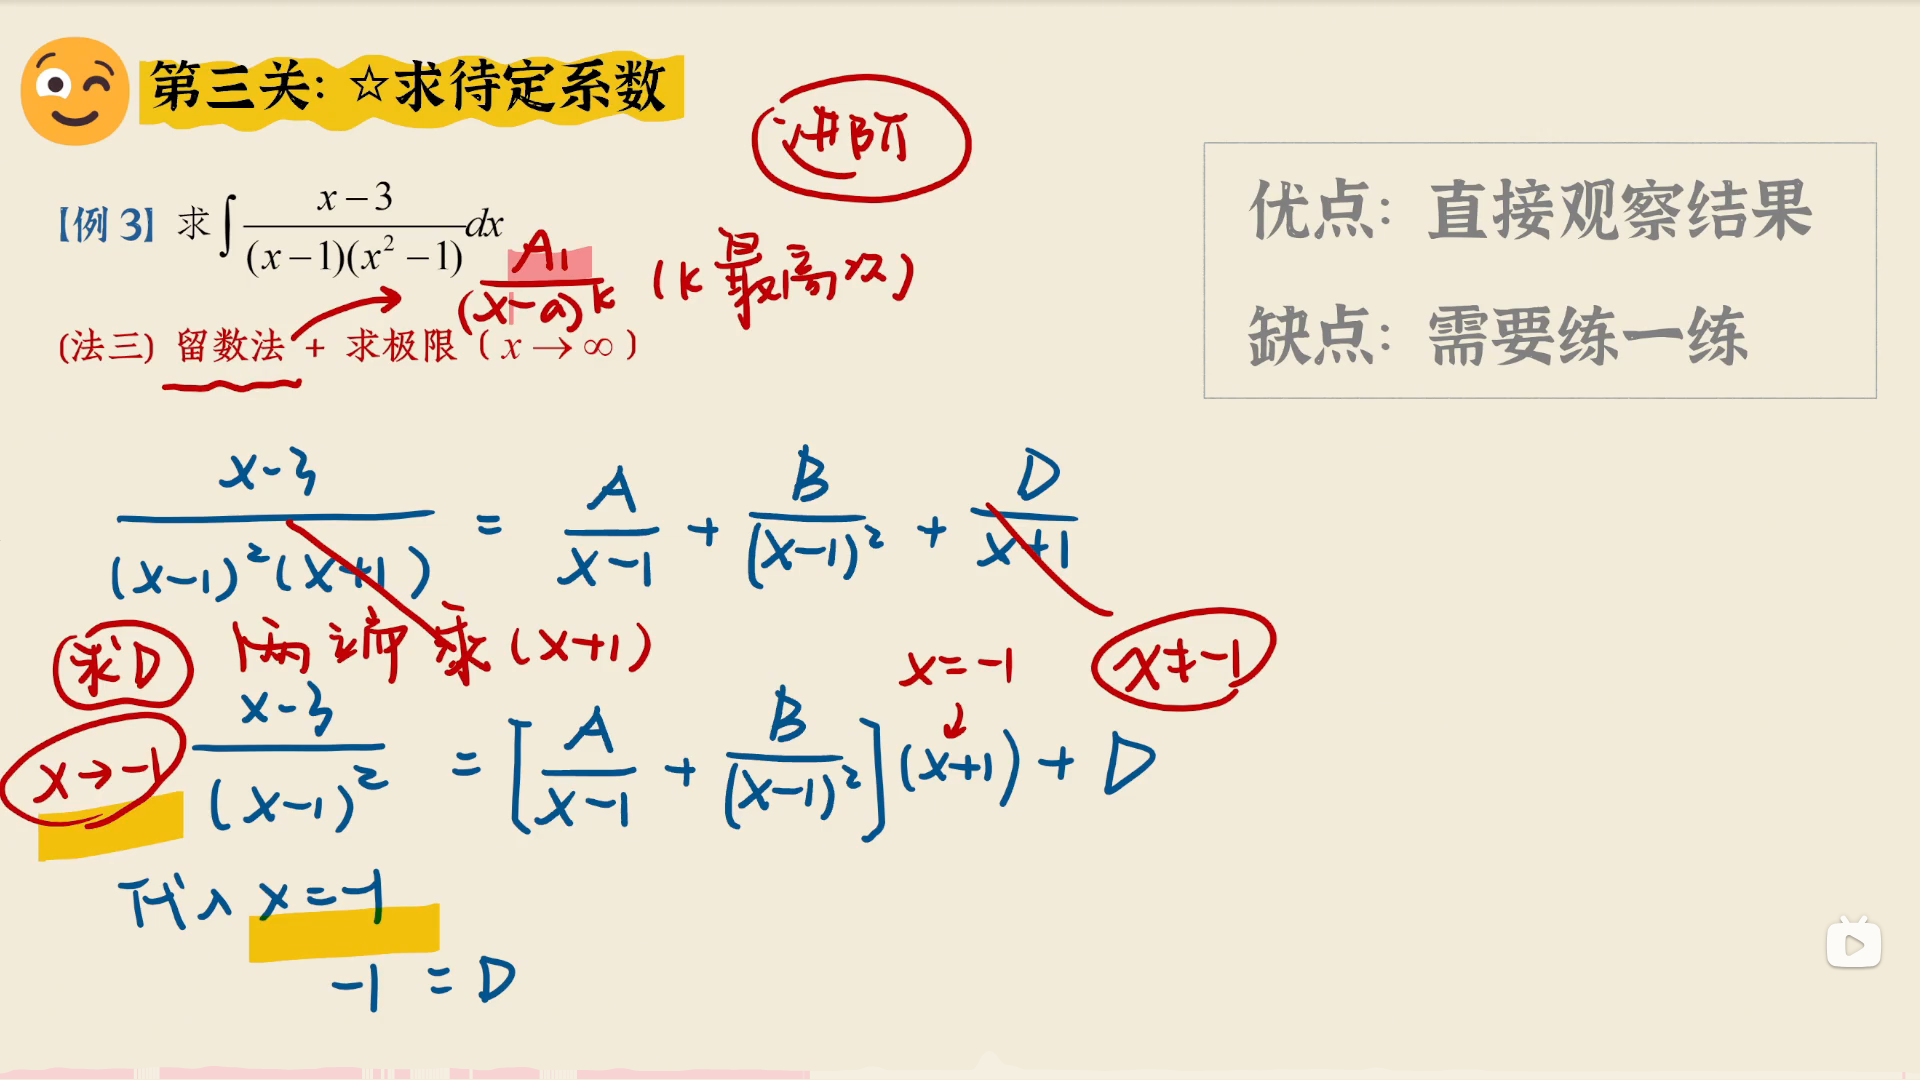 第三关: ☆求待定系数
进阶
【例 3】求∫ (x−3)/((x−1)(x²−1)) dx
A₁/(x−a)ᵏ (k最高次)
(法三) 留数法 + 求极限 (x→∞)
优点: 直接观察结果
缺点: 需要练一练
(x−3)/((x−1)²(x+1)) = A/(x−1) + B/(x−1)² + D/(x+1)
求D 两端乘(x+1)
x=−1
x≠−1
x→−1
(x−3)/(x−1)² = [A/(x−1) + B/(x−1)²](x+1) + D
代入 x=−1
−1 = D